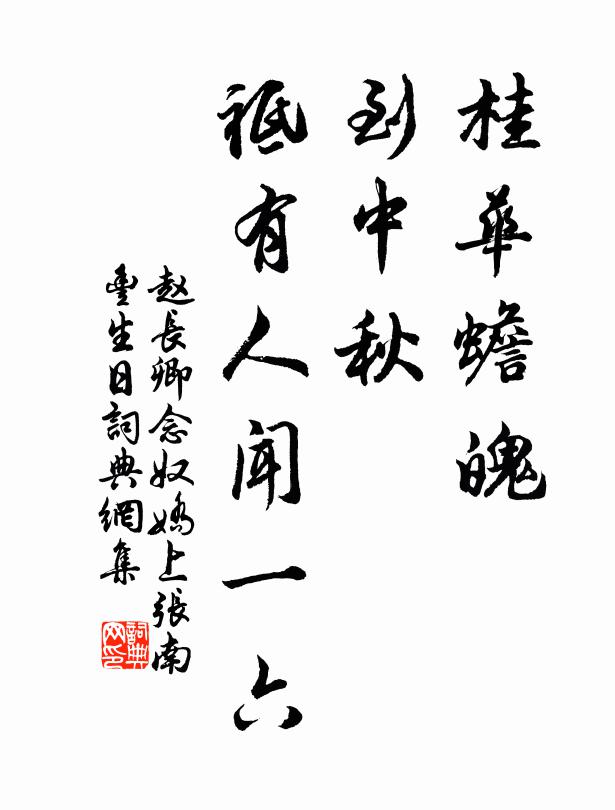 桂華蟾魄
到中秋
祗有人聞一六
赵長卿念奴嬌上張南
豐生日詞典網集
詞典网印